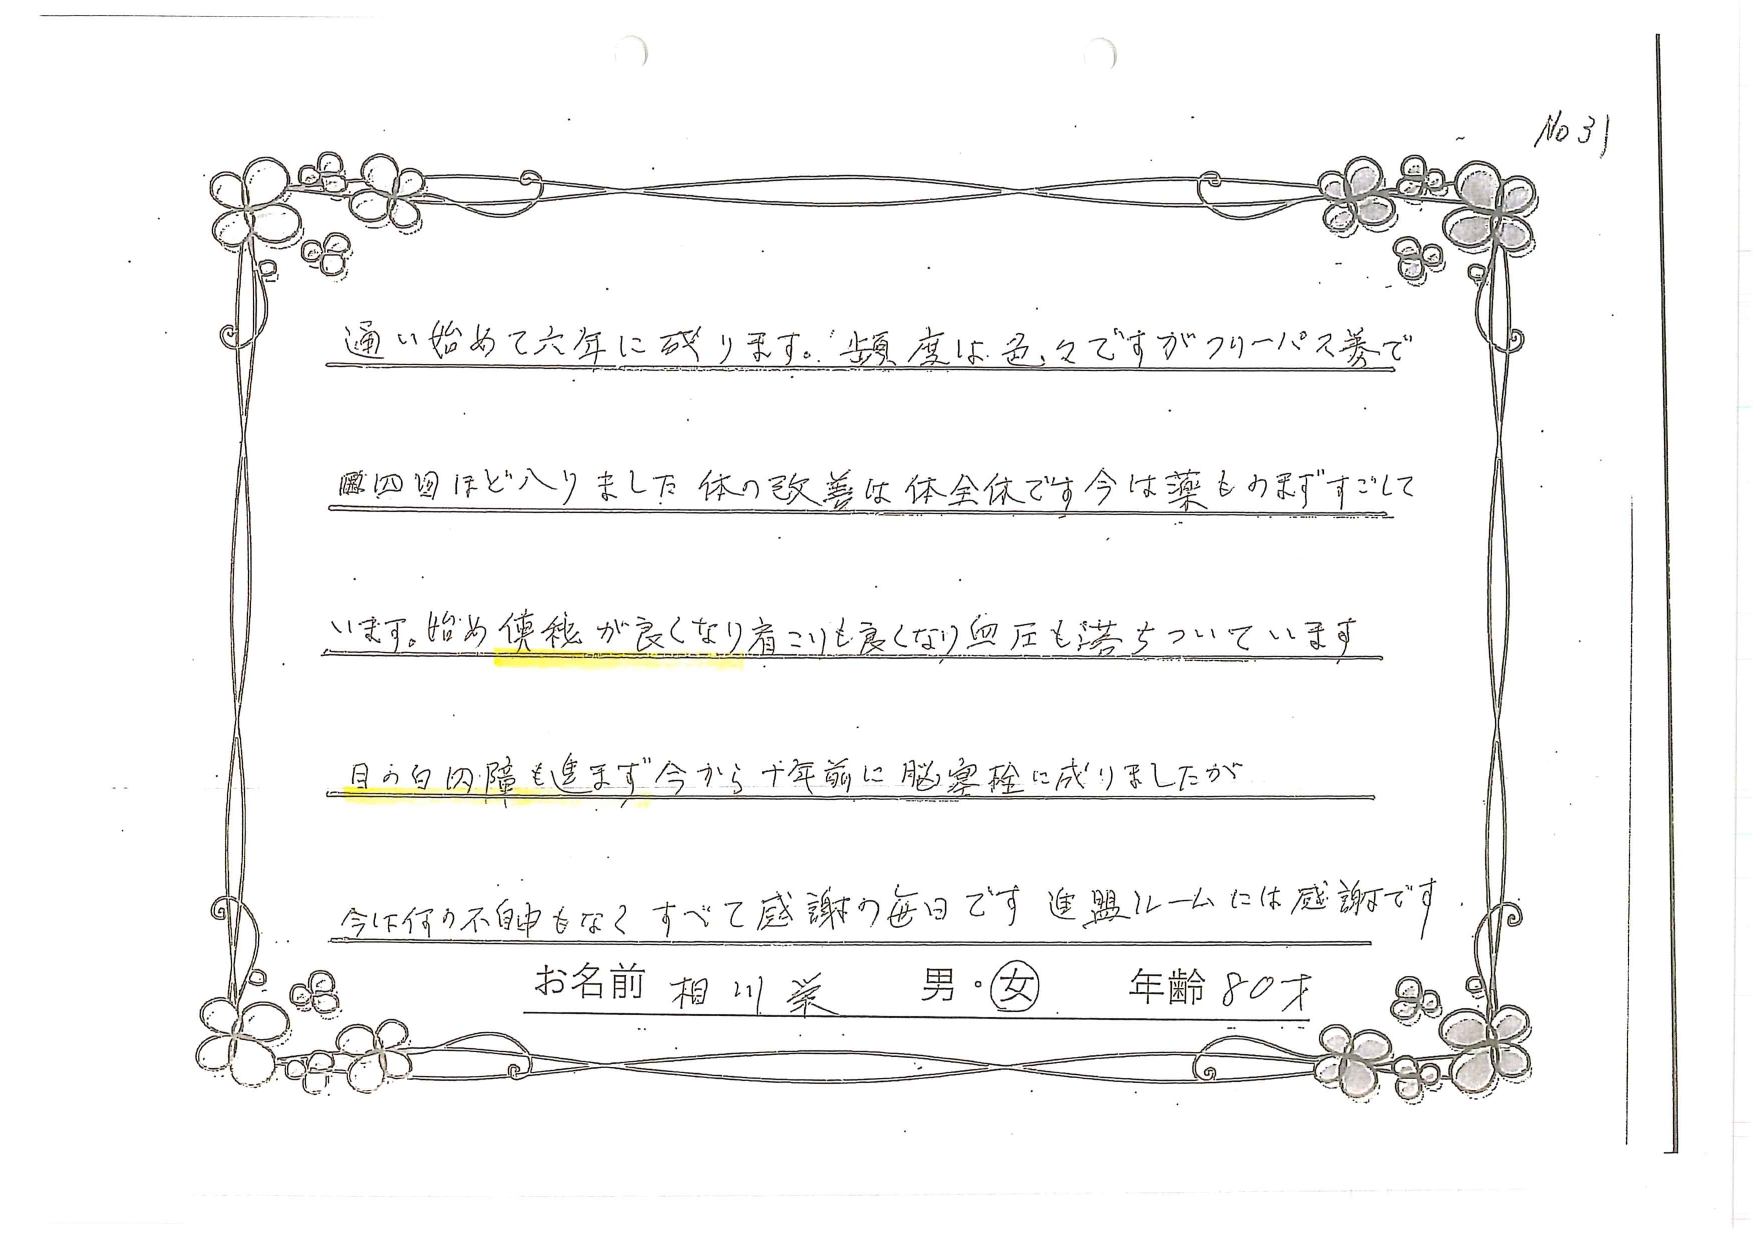 No 31
通い始めて六年に成ります。頻度は色々ですがフリーパス券で
四回ほど入りました 体の改善は体全体です 今は薬ものまずすごして
います。始め便秘が良くなり肩こりも良くなり血圧も落ちついています
目の白内障も進まず今から十年前に脳塞栓に成りましたが
今は何の不自由もなく すべて感謝の毎日です 進盟ルームには感謝です
お名前 相川 栄 男・女 年齢 80才